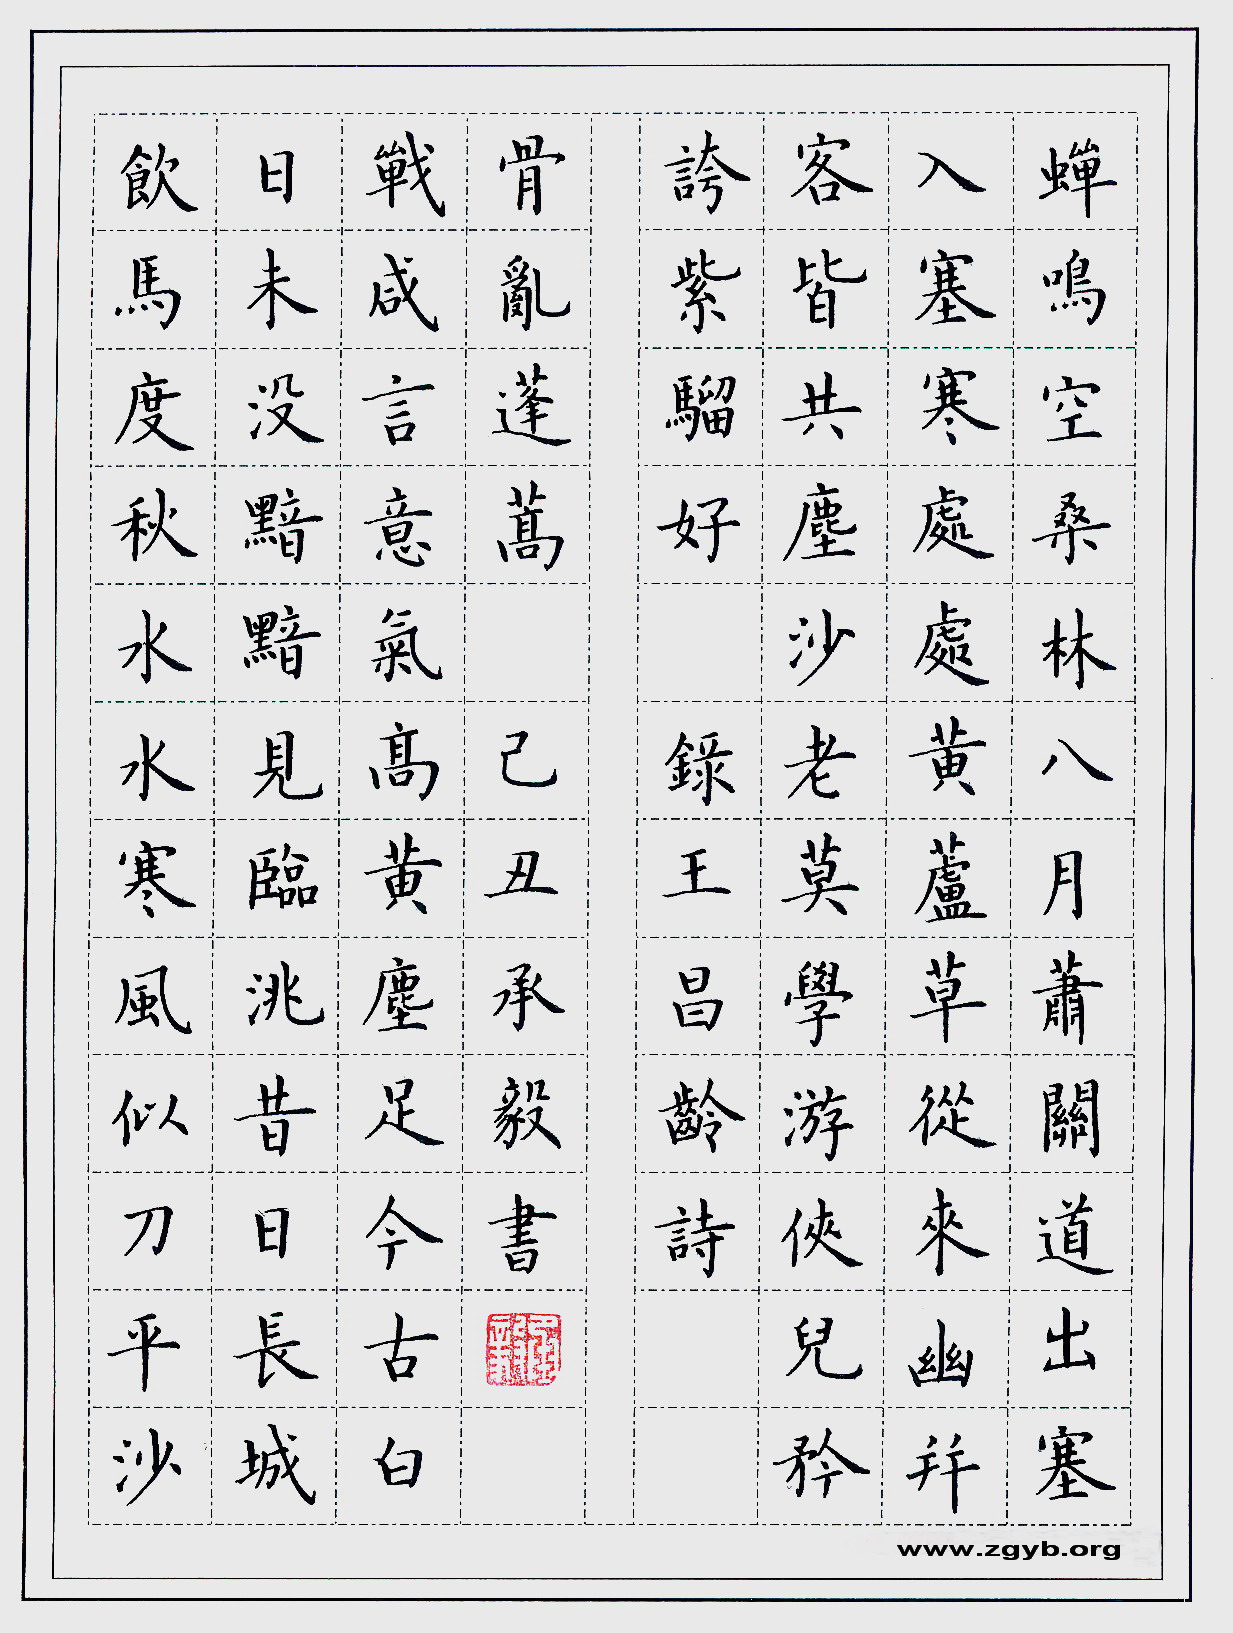 蟬鳴空桑林八月蕭關道出塞
入塞寒處處黄蘆草從來幽并
客皆共塵沙老莫學游俠兒矜
誇紫騮好 錄王昌齡詩
飲馬度秋水水寒風似刀平沙
日未没黯黯見臨洮昔日長城
戰咸言意氣髙黄塵足今古白
骨亂蓬蒿 己丑承毅書
www.zgyb.org